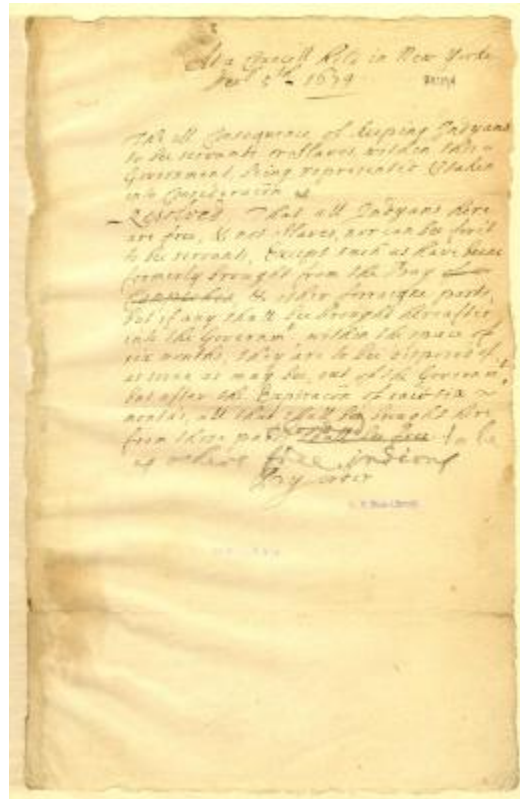 At a Councell Held in New Yorke
5th 1679
The ill Consequence of keeping Indyans
to bee servants or slaves, within this
Government, being represented & taken
into Consideracon
Resolved, That all Indyans here
are free, & not slaves, nor can bee forct
to bee servants, Except such as have beene
formerly brought from the Bay
& other forreigne parts,
but if any shall bee brought hereafter
into the Governmt within the space of
six months, they are to bee disposed of,
as soone as may bee, out of the Governmt,
but after the Expiracon of said six
months, all that shall bee brought here
from those parts shall bee free to be
as others free indians
By order